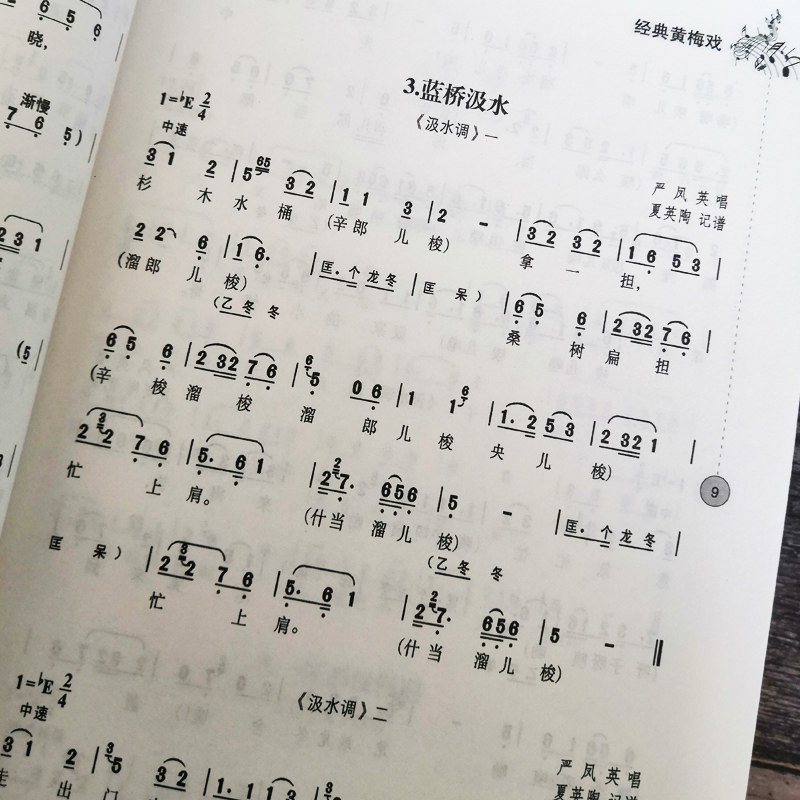 经典黄梅戏
6 5 6
晓,
渐慢
7 6 5 )
2 3 1
( 5
3.蓝桥汲水
《汲水调》一
1=♭E 2/4
中速
严凤英 唱
夏英陶 记谱
3 1 2 | 5 65 3 2 | 1 1 3 | 2 - | 3 2 3 2 | 1 6 5 3 |
杉 木 水 桶 (辛郎 儿 梭) 拿 一 担,
2 2 6 | 1 6. | 匡. 个 龙 冬 | 匡 呆 ) 6 5 6 | 2 32 7 6 |
(溜郎 儿 梭) 桑 树 扁 担
(乙 冬 冬
6 5 6 | 2 32 7 6 | 6 5 0 6 | 1 1 6 | 1. 2 5 3 | 2 32 1 |
(辛 梭 溜 梭 溜 郎 儿 梭 央 儿 梭)
2 3 2 7 6 | 5. 6 1 | 2 2 7. 6 5 6 | 5 - | 匡. 个 龙 冬 |
忙 上 肩。 (什当 溜儿 梭)
(乙 冬 冬
匡 呆 ) | 2 3 2 7 6 | 5. 6 1 | 2 2 7. 6 5 6 | 5 - ‖
忙 上 肩。 (什当 溜儿 梭)
9
《汲水调》二
1=♭E 2/4
中速
严凤英 唱
夏英陶 记谱
3 1 2 | 3 5 3 2 | 1. 1 1 3
走 出 门